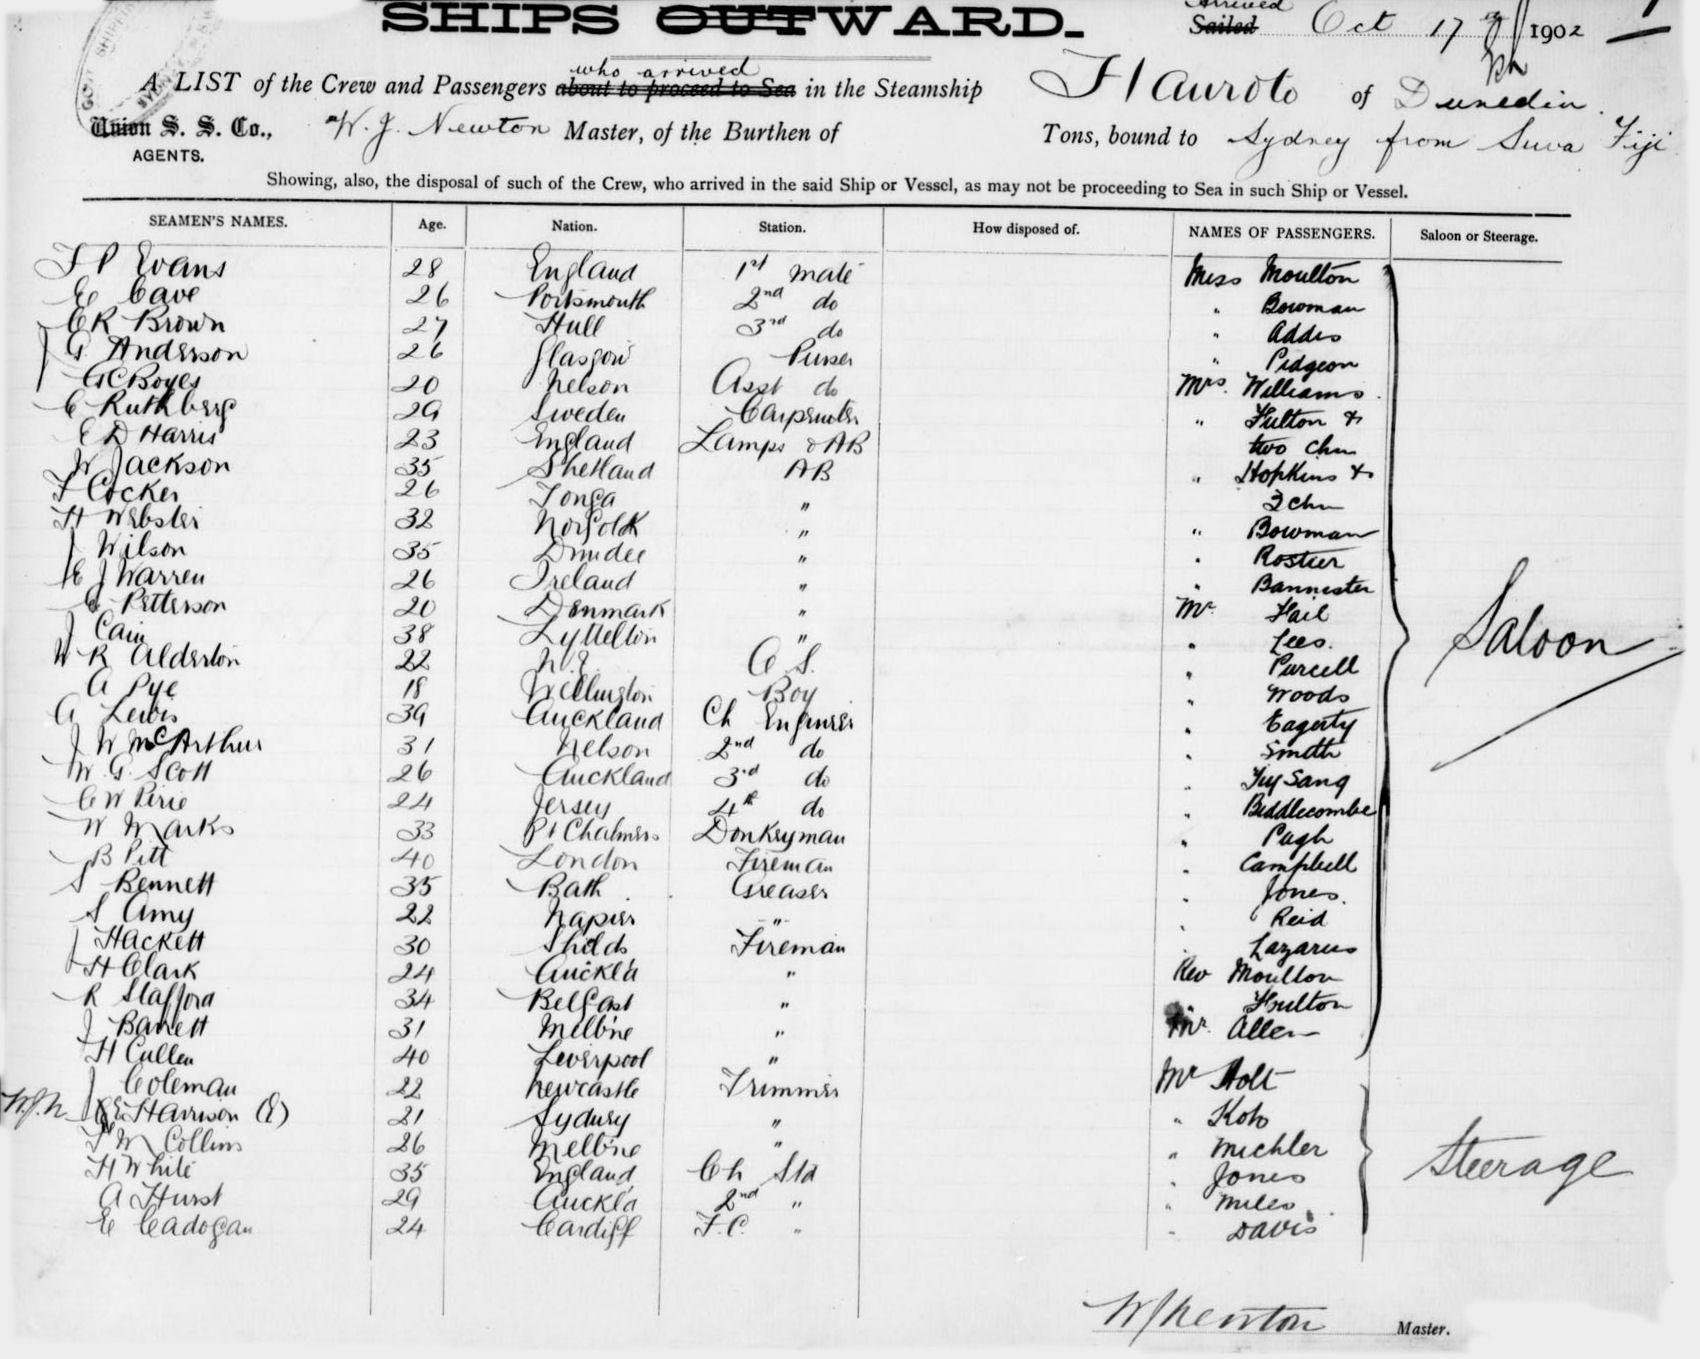 SHIPS OUTWARD.
Arrived
Sailed Oct 17th 1902
who arrived
A LIST of the Crew and Passengers about to proceed to Sea in the Steamship Hauroto of Dunedin.
Union S. S. Co., W. J. Newton Master, of the Burthen of Tons, bound to Sydney from Suva Fiji
AGENTS.
Showing, also, the disposal of such of the Crew, who arrived in the said Ship or Vessel, as may not be proceeding to Sea in such Ship or Vessel.
SEAMEN'S NAMES. Age. Nation. Station. How disposed of. NAMES OF PASSENGERS. Saloon or Steerage.
F P Evans 28 England 1st mate Miss Moulton
E Cave 26 Portsmouth 2nd do " Bowman
E R Brown 27 Hull 3rd do " Addis
G Anderson 26 Glasgow Purser " Pidgeon
G C Boyes 20 Nelson Asst do Mrs. Williams.
C Ruthberg 29 Sweden Carpenter " Fulton &
E D Harris 23 England Lamps & AB two chn
W Jackson 35 Shetland AB " Hopkins &
F Cocker 26 Tonga " chn
H Webster 32 Norfolk " " Bowman
J Wilson 35 Dundee " " Rostier
E J Warren 26 Ireland " " Bannister
Petterson 20 Denmark " Mr Hail
J Cain 38 Lyttelton " " Lees.
W R Alderton 22 O S. " Purcell
A Pye 18 Wellington Boy " Woods
A Lewis 39 Auckland Ch Engineer " Eagerty
J W McArthur 31 Nelson 2nd do " Smith
W. G. Scott 26 Auckland 3rd do " Sang
C W Pirie 24 Jersey 4th do " Biddlecombe
W Marks 33 Pt Chalmers Donkeyman " Pugh
B Pitt 40 London Fireman " Campbell
S Bennett 35 Bath Greaser " Jones.
S Amy 22 Napier " " Reid
J Hackett 30 Shields Fireman " Lazarus
H Clark 24 Auckl'd " Rev Moulton
R Stafford 34 Belfast " " Fulton
J Barrett 31 Melb'ne " Mr. Allen
H Cullen 40 Liverpool "
Saloon
J Coleman 22 Newcastle Trimmer Mr Holt
W.J.N Harrison (E) 21 Sydney " "
M Collins 26 Melb'ne " " Michler
H White 35 England Ch Std " Jones
A Hurst 29 Auckl'd 2nd " " Miles
E Cadogan 24 Cardiff F.C. " " Davis
Steerage
W J Newton Master.